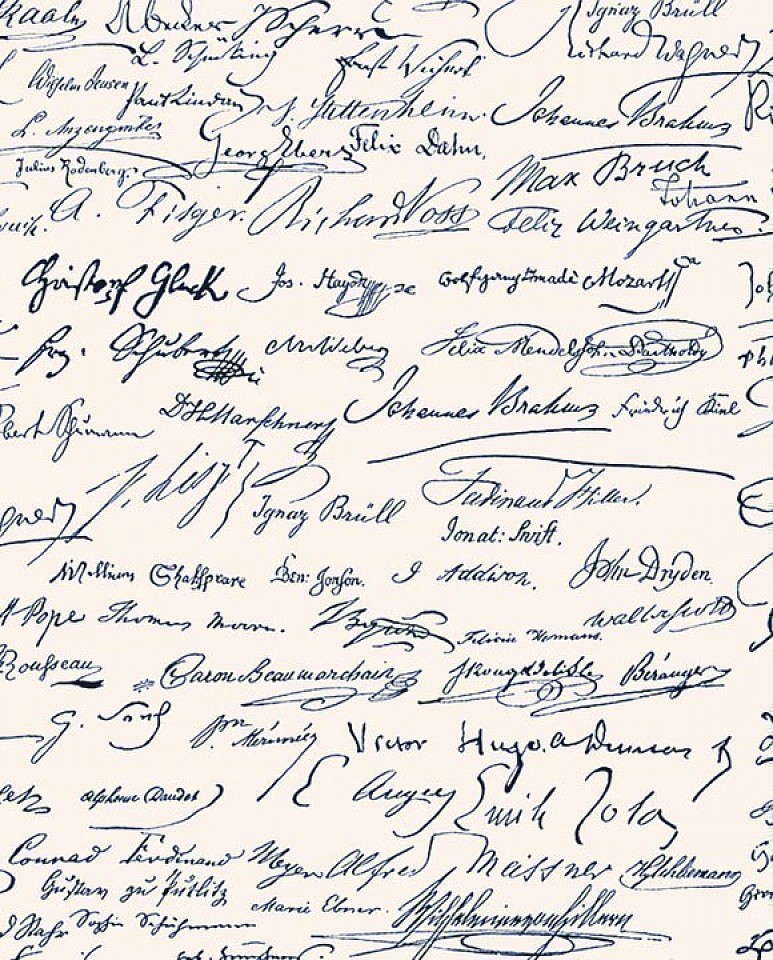 Ignaz Brüll
L. Schücking Ernst Wichert Richard Wagner
Wilhelm Jensen Paul Lindau J. Stettenheim. Johannes Brahms
L. Anzengruber Georg Ebers Felix Dahn,
Julius Rodenberg. Max Bruch
Johann
A. Fitger. Richard Voss Felix Weingartner.
Christoph Gluck Jos. Haydn Wolfgang Amadè Mozart
Frz. Schubert CMvWeber Felix Mendelssohn Bartholdy
bert Schumann DHMarschner Johannes Brahms Friedrich Kiel
F. Liszt Ignaz Brüll Ferdinand Hiller.
Jonat: Swift.
William Shakspeare Ben: Jonson. J Addison. John Dryden.
A Pope Thomas Moore. Byron Felicia Hemans. Walter Scott
Rousseau Caron Beaumarchais Rouget de Lisle Béranger
G. Sand Pr Mérimée Victor Hugo. A Dumas
Alphonse Daudet Augier Emile Zola
Conrad Ferdinand Meyer Alfred Meissner
Gustav zu Putlitz Marie Ebner. Wilhelmine von Hillern